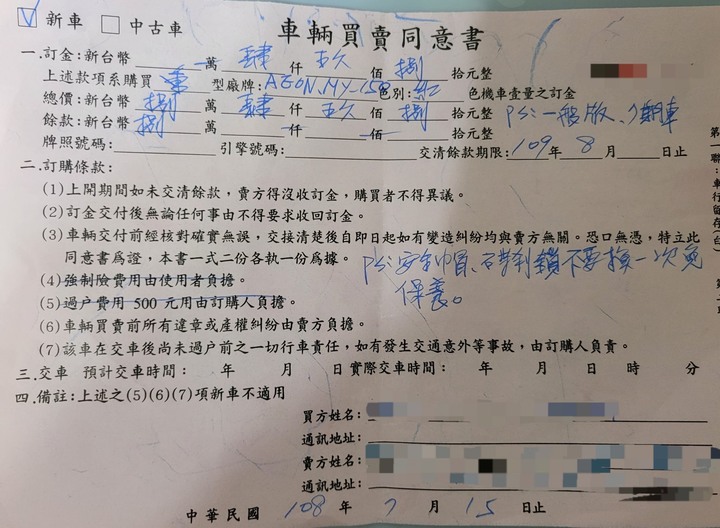 ☑新車 □中古車 車輛買賣同意書
一.訂金:新台幣 萬 肆 仟 玖 佰 捌 拾元整
上述款項系購買 型廠牌:AEON.MY-150 色別:紅 色機車壹量之訂金
總價:新台幣 捌 萬 肆 仟 玖 佰 捌 拾元整 PS:一般版、7期車
餘款:新台幣 捌 萬 仟 佰 拾元整
牌照號碼: 引擎號碼: 交清餘款期限:109年8月 日止
二.訂購條款:
(1)上開期間如未交清餘款,賣方得沒收訂金,購買者不得異議。
(2)訂金交付後無論任何事由不得要求收回訂金。
(3)車輛交付前經核對確實無誤,交接清楚後自即日起如有變造糾紛均與賣方無關。恐口無憑,特立此
同意書為證,本書一式二份各執一份為據。
PS:安全帽、鎖不要換一次免
保養。
(4)強制險費用由使用者負擔。
(5)過户費用 500 元用由訂購人負擔。
(6)車輛買賣前所有違章或產權糾紛由賣方負擔。
(7)該車在交車後尚未過户前之一切行車責任,如有發生交通意外等事故,由訂購人負責。
三.交車 預計交車時間: 年 月 日 實際交車時間: 年 月 日 時 分
四.備註:上述之(5)(6)(7)項新車不適用
買方姓名:
通訊地址:
賣方姓名:
通訊地址:
中華民國 108 年 7 月 15 日止
第一聯:車行留存(白